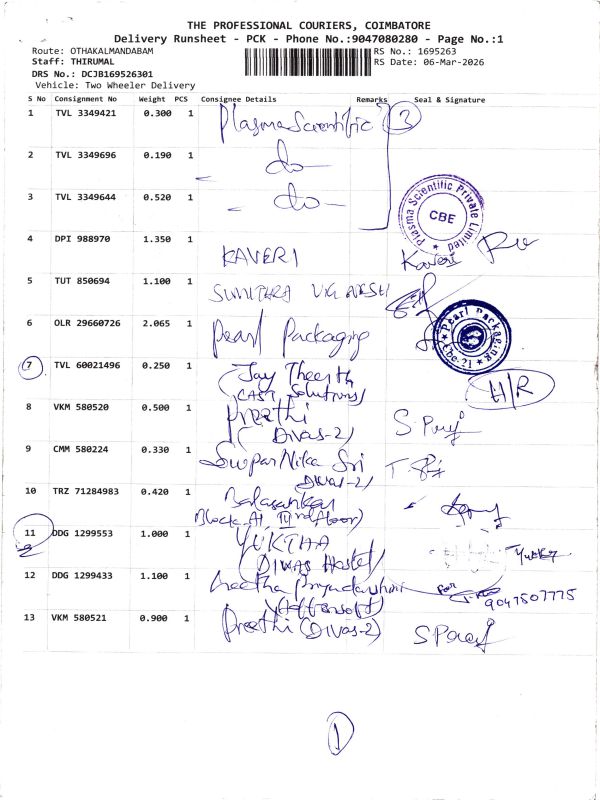 THE PROFESSIONAL COURIERS, COIMBATORE
Delivery Runsheet - PCK - Phone No.:9047080280 - Page No.:1
Route: OTHAKALMANDABAM RS No.: 1695263
Staff: THIRUMAL RS Date: 06-Mar-2026
DRS No.: DCJB169526301
Vehicle: Two Wheeler Delivery
S No Consignment No Weight PCS Consignee Details Remarks Seal & Signature
1 TVL 3349421 0.300 1 Plasma Scientific 3
2 TVL 3349696 0.190 1 - do -
3 TVL 3349644 0.520 1 - do -
Plasma Scientific Private Limited
CBE
4 DPI 988970 1.350 1 KAVERI Kaveri
5 TUT 850694 1.100 1 SUMITHRA
6 OLR 29660726 2.065 1 Pearl Packaging
Pearl Packaging
Cbe-21
7 TVL 60021496 0.250 1 Jay Theerth H/R
(CAST Solutions)
8 VKM 580520 0.500 1 Preethi
(Divas-2)
9 CMM 580224 0.330 1 Sri
(Divas-2)
10 TRZ 71284983 0.420 1
11 DDG 1299553 1.000 1 YUKTHA
(DIWAS Hostel)
12 DDG 1299433 1.100 1 For
9047507775
13 VKM 580521 0.900 1 Preethi (Divas-2)
1